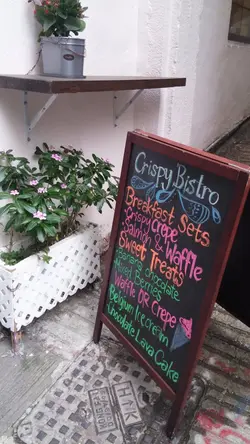 Crispy Bistro
Breakfast Sets
Crispy CREPE
Salmon & Waffle
Sweet Treats
Banana chocolate
Mixed Berries
Waffle OR Crepe
Belgium Icecream
Chocolate Lava Cake